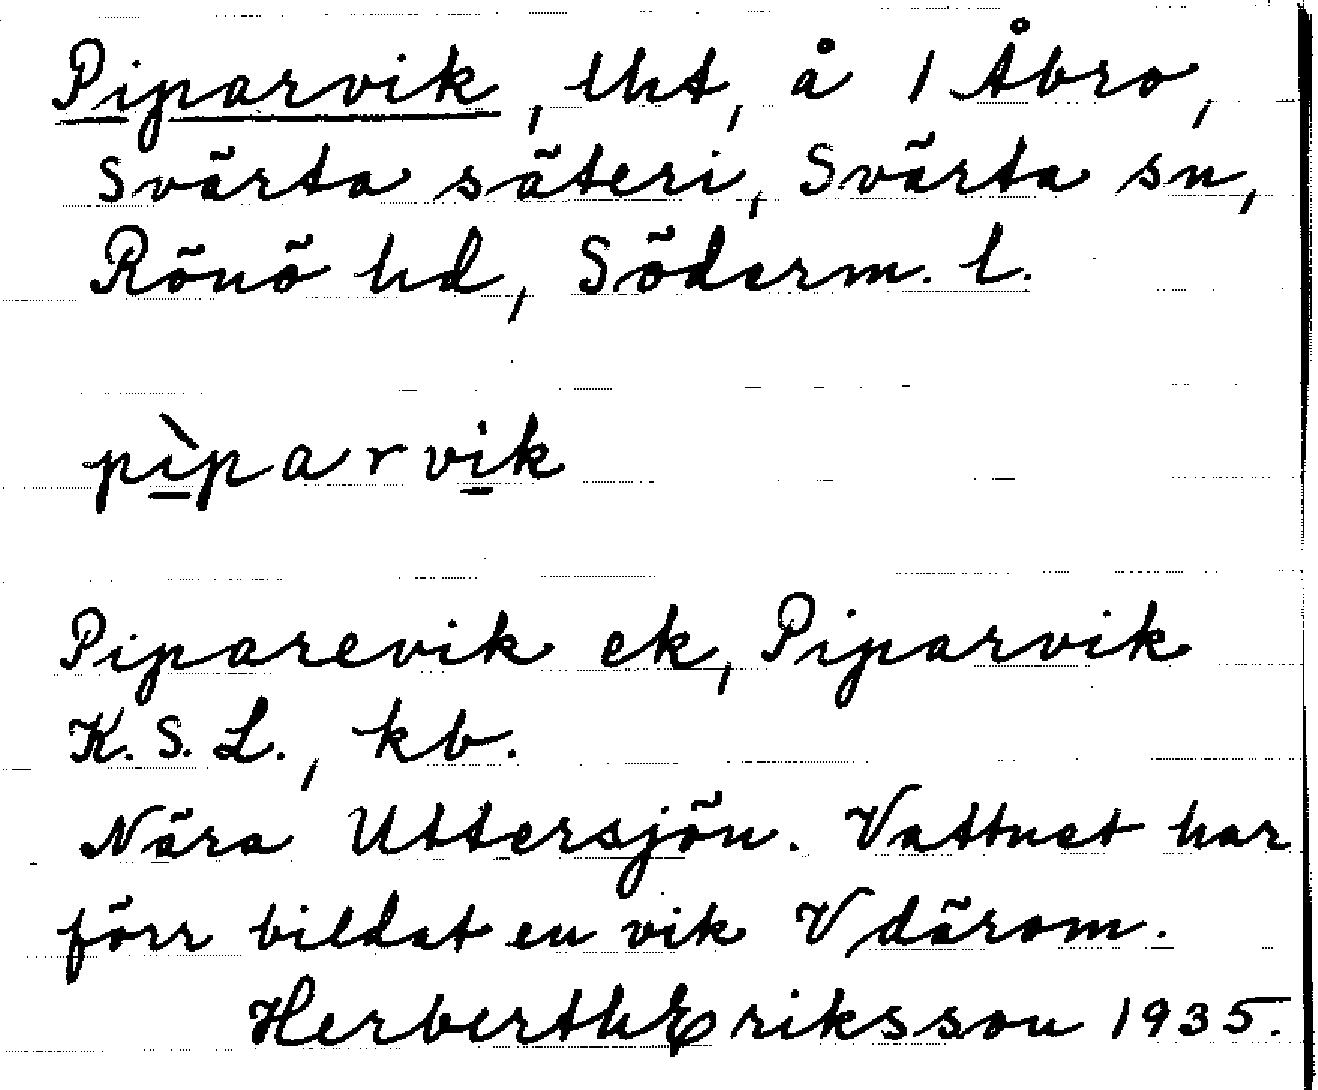 Piparvik, lht, å 1 Åbro,
Svärta säteri, Svärta sn,
Rönö hd, Söderm. l.
pìparvik
Piparevik ek, Piparvik
K. S. L., kb.
Nära Uttersjön. Vattnet har
förr bildat en vik V därom.
Herberth Eriksson 1935.